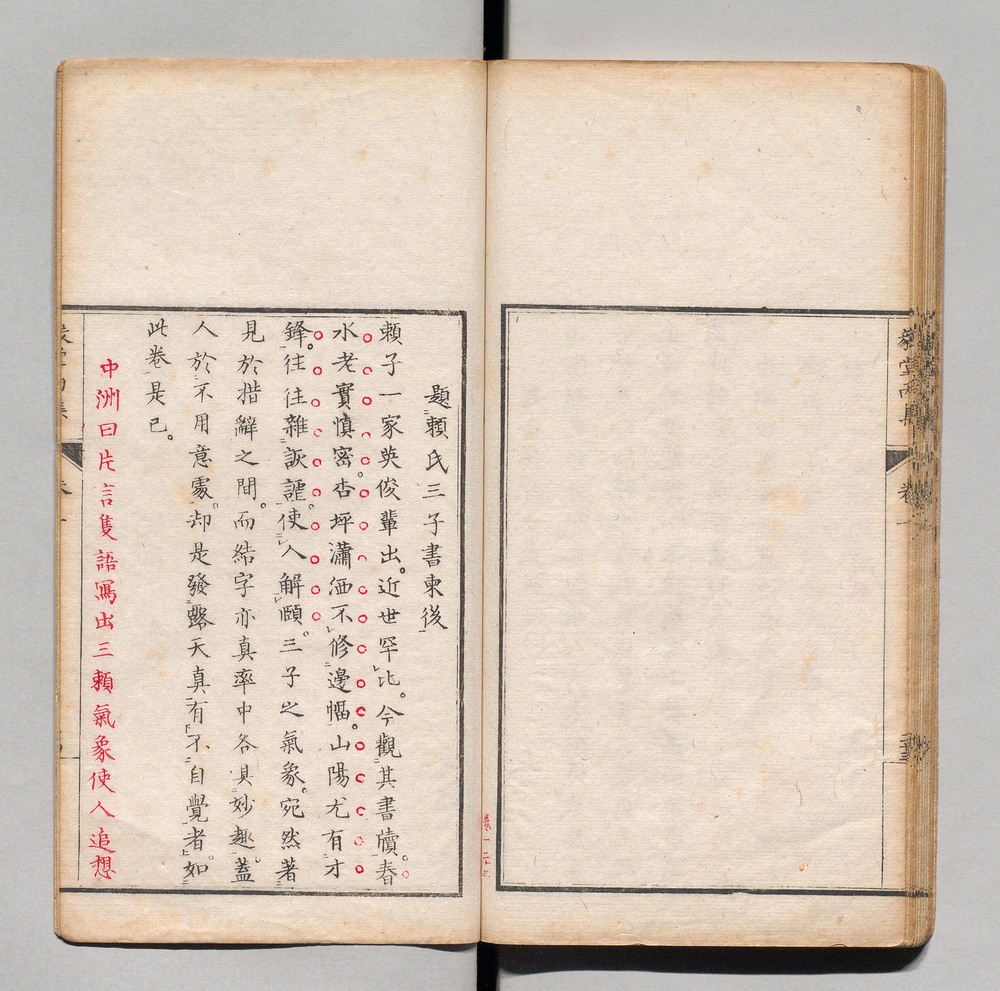 題賴氏三子書柬後
賴子一家英俊輩出。近世罕比。今觀其書牘。春
水老實慎密。杏坪瀟洒不修邊幅。山陽尤有才
鋒。往往雜詼謔。使人解頤。三子之氣象。宛然著
見於措辭之間。而結字亦真率中各具妙趣。蓋
人於不用意處。却是發露天真有不自覺者。如
此卷是已。
中洲曰片言隻語寫出三賴氣象使人追想
卷一